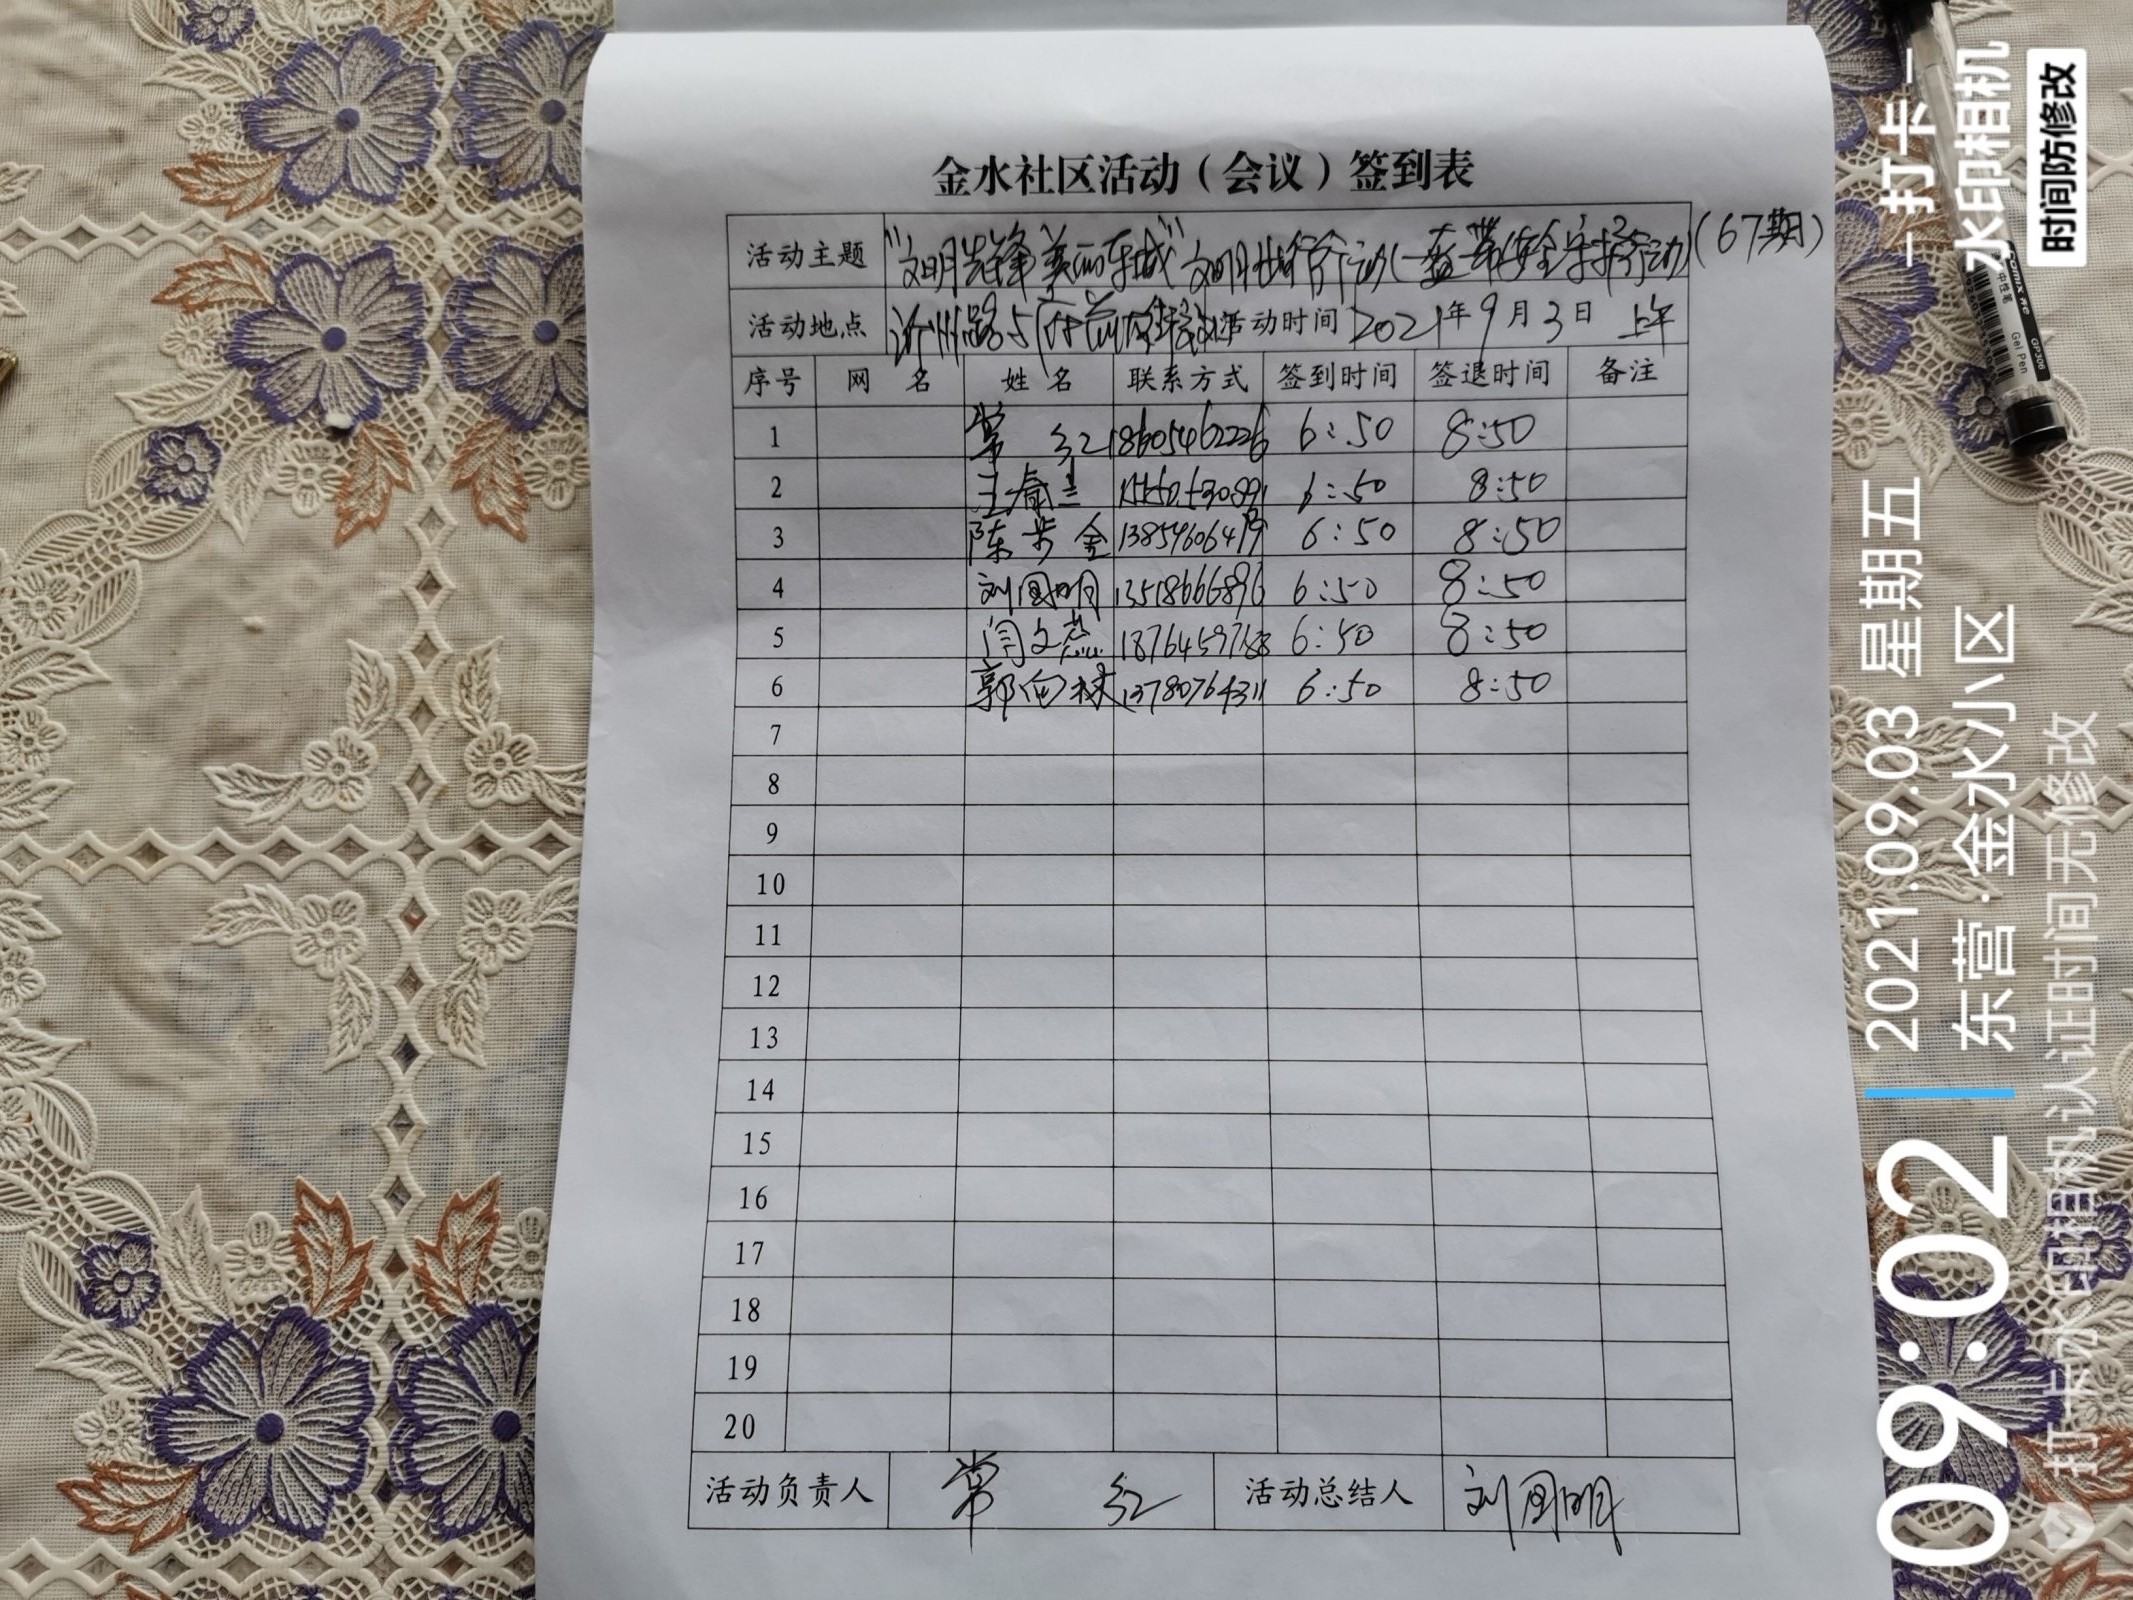 金水社区活动（会议）签到表
活动主题 “文明先锋 美丽东城”文明出行行动（一盔一带安全守护行动）（67期）
活动地点 沂州路与府前 活动时间 2021年9月3日 上午
序号 网 名 姓 名 联系方式 签到时间 签退时间 备注
1 常 红 18605462226 6:50 8:50
2 王 兰 6:50 8:50
3 陈步金 6:50 8:50
4 刘国明 13518666896 6:50 8:50
5 闫文燕 6:50 8:50
6 郭向林 13780764311 6:50 8:50
7
8
9
10
11
12
13
14
15
16
17
18
19
20
活动负责人 常 红 活动总结人 刘国明
09:02
2021.09.03 星期五
东营·金水小区
打卡
水印相机
时间防修改
打卡水印相机认证时间无修改
GP306
Gel Pen
中性笔